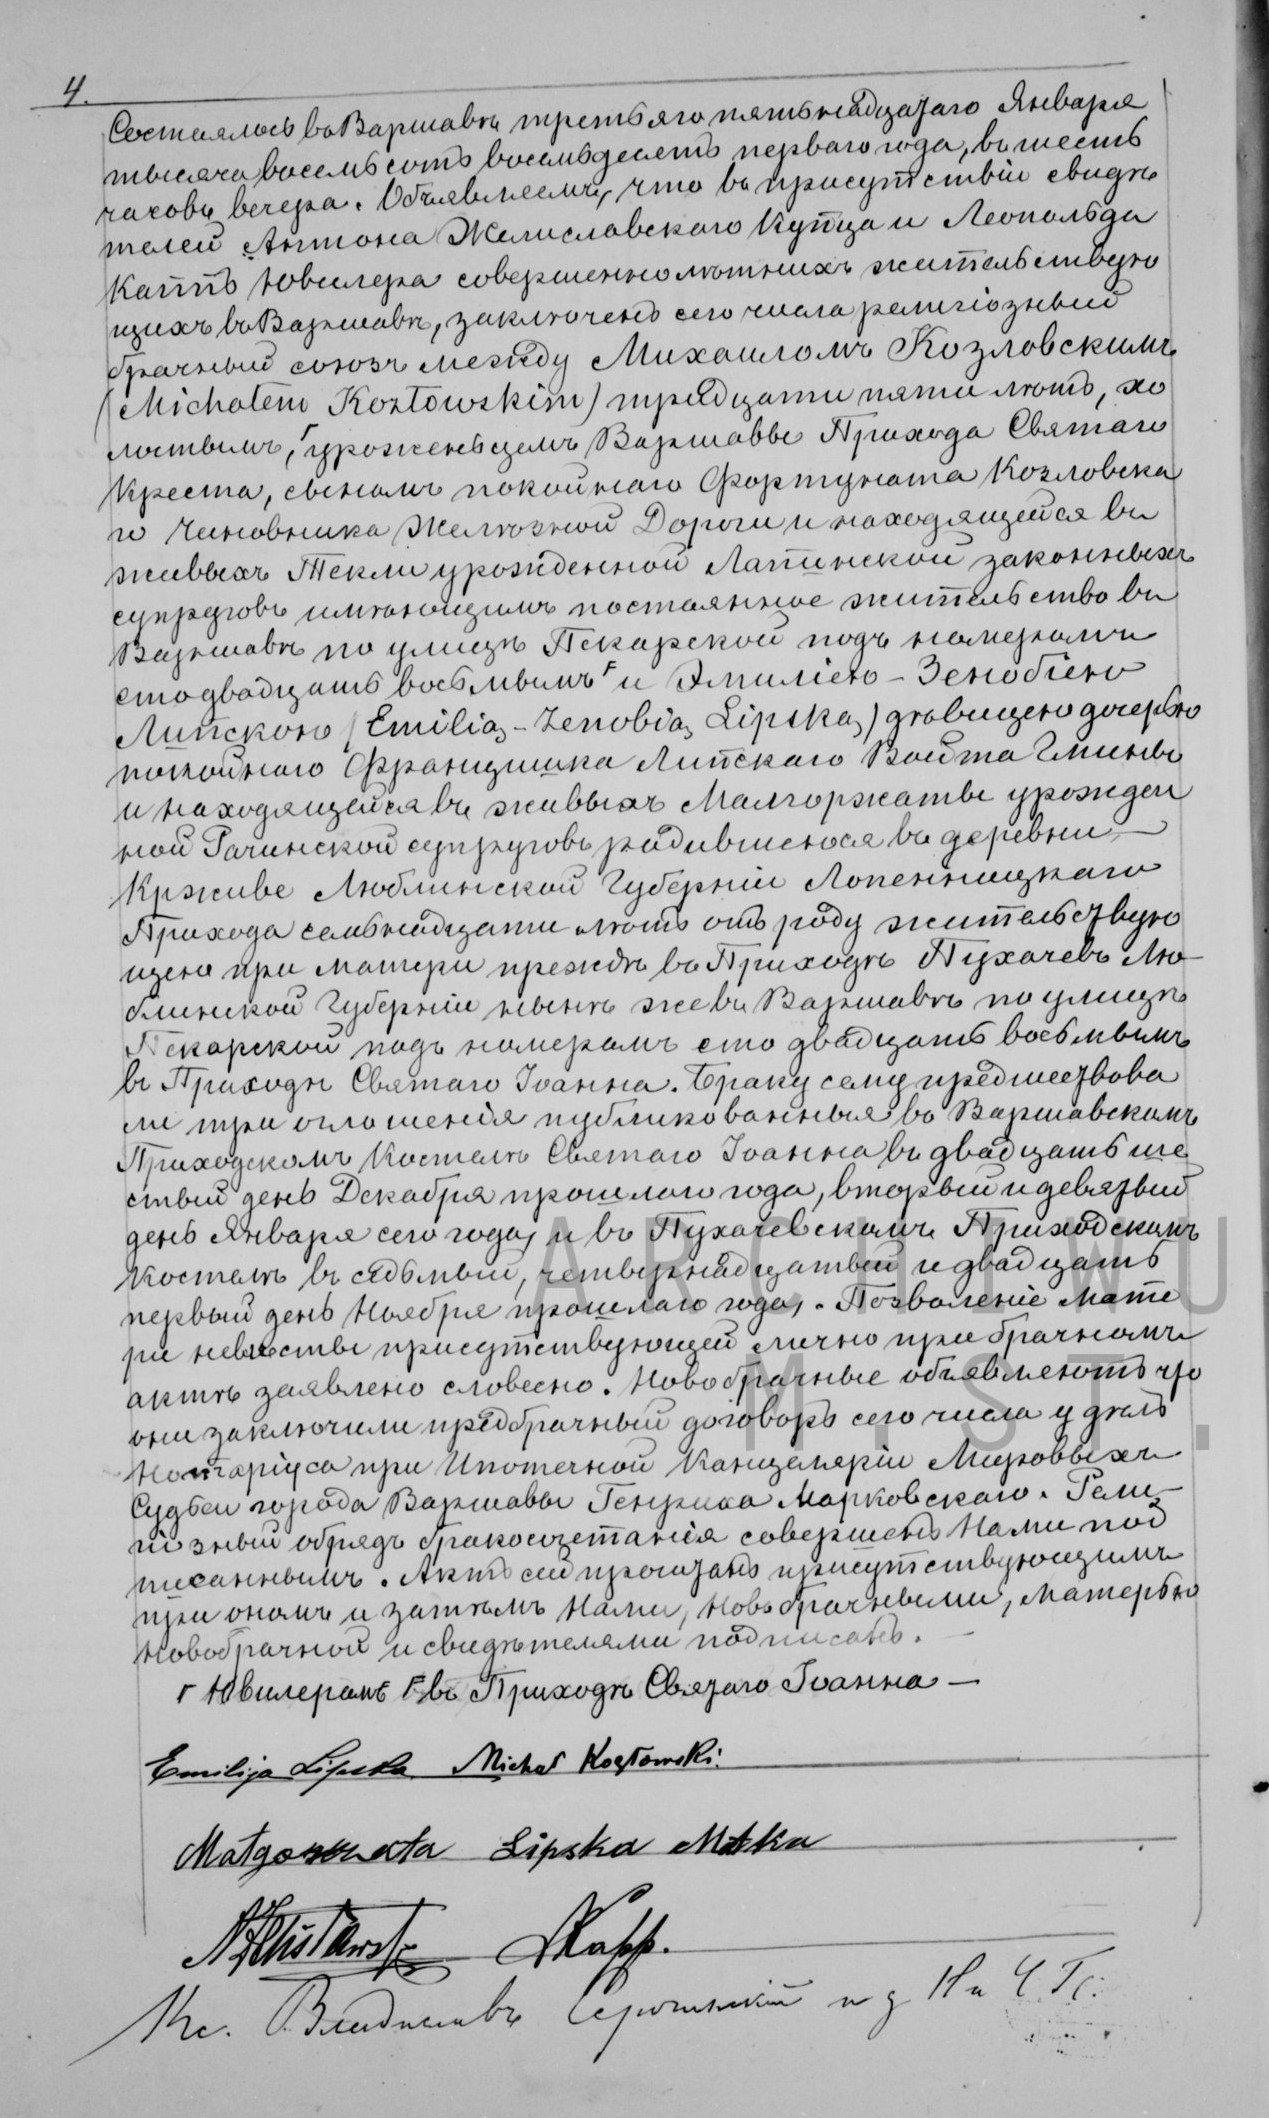 4.
Состоялось въ Варшавѣ третьяго пятьнадцатаго Января
тысяча восемьсотъ восемьдесятъ перваго года, въ шесть
часовъ вечера. Объявляемъ, что въ присутствіи свидѣ
телей Антона Желиславскаго Купца и Леопольда
Каппъ Ювилера совершеннолѣтнихъ жительствую
щихъ въ Варшавѣ, заключенъ сего числа религіозный
брачный союзъ между Михаиломъ Козловскимъ
(Michałem Kozłowskim) тридцати пяти лѣтъ, хо
лостымъ, ┌ уроженьцемъ Варшавы Прихода Святаго
Креста, сыномъ покойнаго Фортуната Козловска
го Чиновника Желѣзной Дороги и находящейся въ
живыхъ Текли урожденной Лапинской законныхъ
супруговъ имѣющимъ постоянное жительство въ
Варшавѣ по улицѣ Пекарской подъ номеромъ
стодвадцать восьмымъ ┌ и Эмиліею-Зенобіею
Липскою (Emilią-Zenobią Lipską) дѣвицею дочерью
покойнаго Францишка Липскаго Войта Гмины
и находящейся въ живыхъ Малгоржаты урожден
ной Рачинской супруговъ родившеюся въ деревни
Крживе Люблинской Губерніи Лопенницкаго
Прихода семьнадцати лѣтъ отъ роду жительствую
щею при матери прежде въ Приходѣ Пухачевъ Лю-
блинской Губерніи нынѣ же въ Варшавѣ по улицѣ
Пекарской подъ номеромъ сто двадцать восьмымъ
въ Приходѣ Святаго Іоанна. Браку сему предшествова
ли три оглошенія публикованныя въ Варшавскомъ
Приходскомъ Костелѣ Святаго Іоанна въ двадцать ше
стый день Декабря прошлаго года, вторый и девятый
день Января сего года, и въ Пухачевскомъ Приходскомъ
Костелѣ въ седьмый, четвернадцатый и двадцать
первый день Ноября прошлаго года. Позволеніе мате
ри невѣсты присутствующей лично при брачномъ
актѣ заявлено словесно. Новобрачные объявляютъ что
они заключили предбрачный договоръ сего числа у дѣлъ
Нотаріуса при Ипотечной Канцеляріи Мировыхъ
Судьей города Варшавы Генриха Марковскаго. Рели-
гіозный обрядъ бракосочетанія совершенъ Нами под
писаннымъ. Актъ сей прочитанъ присутствующимъ
при ономъ и затѣмъ Нами, Новобрачными, Матерью
Новобрачной и свидѣтелями подписанъ. —
┌ Ювилеромъ ┌ въ Приходѣ Святаго Іоанна —
Emilija Lipska Michał Kozłowski.
Małgorzata Lipska Matka
LKapp.
Кс. Владиславъ
ARCHIWU
M.ST.